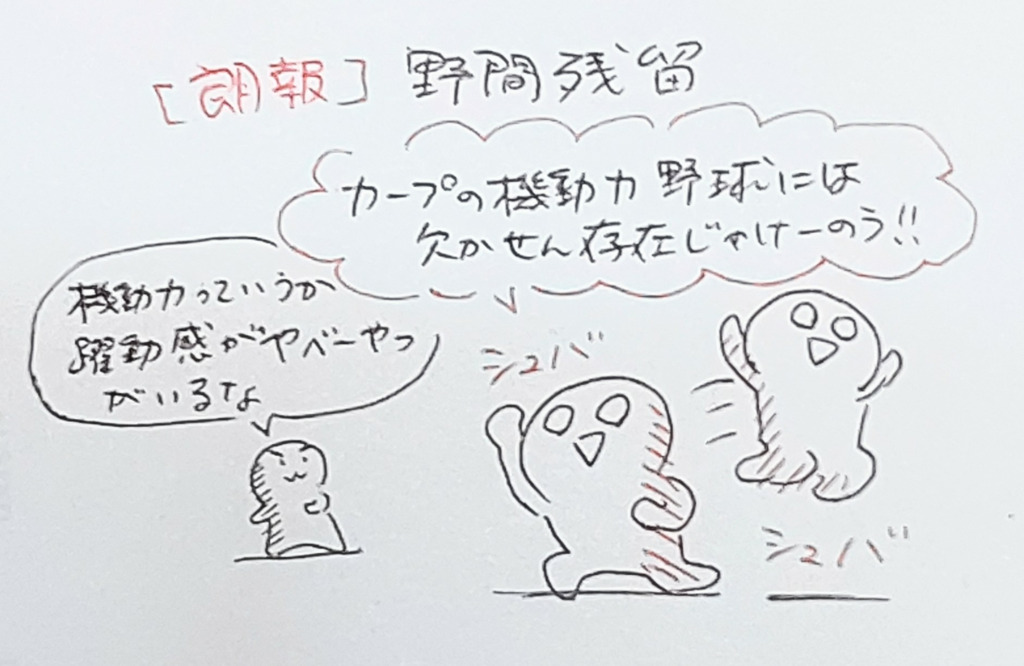 [朗報] 野間残留
カープの機動力野球には
欠かせん存在じゃけーのう!!
機動力っていうか
躍動感がヤベーやつ
がいるな
シュバ
シュバ